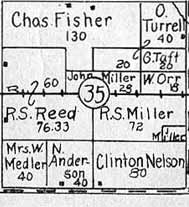 Chas. Fisher
130
O.
Turrell
40
G. Taft
20
20
John Miller
28
W. Orr
18
60
35
R.S. Reed
76.33
R.S. Miller
72
J. Miller
Mrs. W.
Medler
40
N.
Ander-
son
40
Clinton Nelson
80